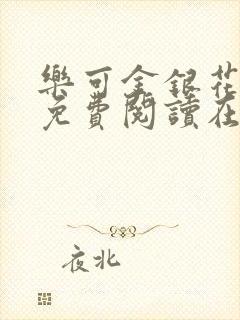 樂可金銀花
免費閱讀在
夜北